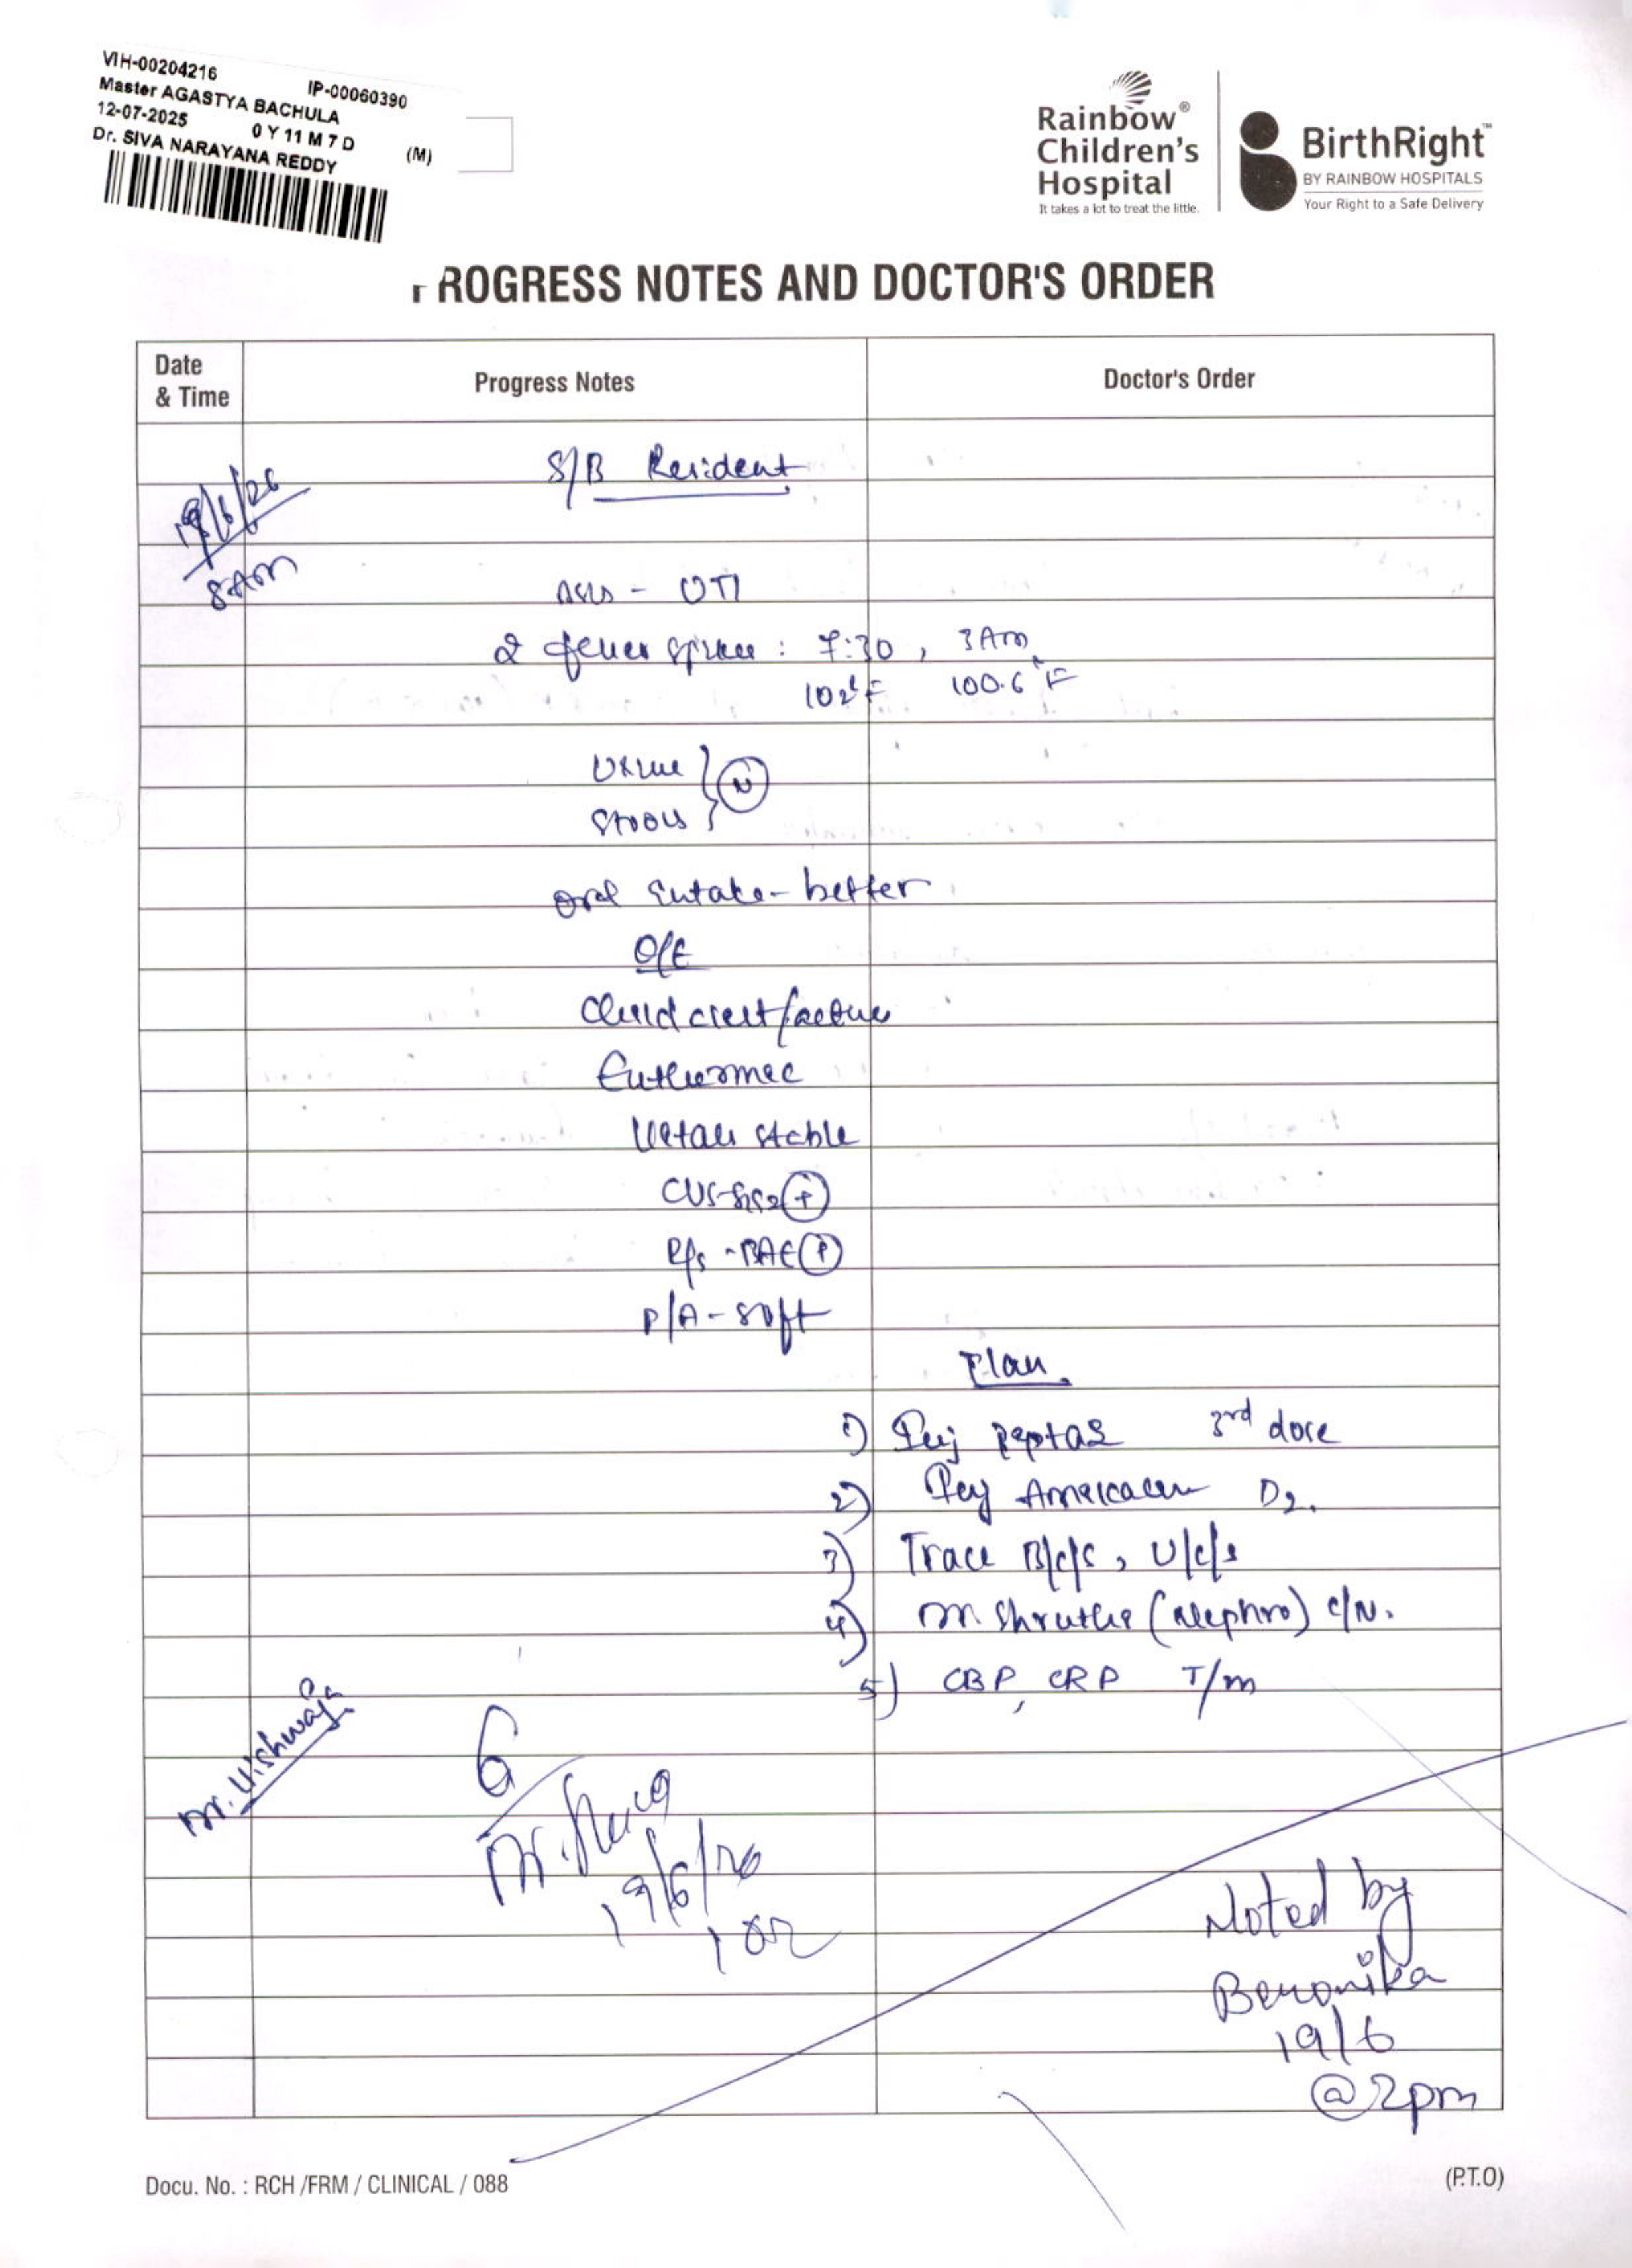 VIH-00204216 IP-00060390
Master AGASTYA BACHULA
12-07-2025 0 Y 11 M 7 D (M)
Dr. SIVA NARAYANA REDDY
Rainbow® Children's Hospital
It takes a lot to treat the little.
BirthRight™
BY RAINBOW HOSPITALS
Your Right to a Safe Delivery
ROGRESS NOTES AND DOCTOR'S ORDER
Date & Time Progress Notes Doctor's Order
19/6/26 S/B Resident
8AM
- UTI
2 fever spikes : 7:30, 3AM
102°F 100.6°F
Urine
Stools } N
Oral intake - better
O/E
Child alert/active
Euthermic
Vitals stable
CVS-S1S2 +
R/S - BAE P
P/A - soft
Plan
1) Inj Peptaz 3rd dose
2) Inj Amikacin D2.
3) Trace B/c/s, U/c/s
4) Dr. Shruthi (Nephro) c/N.
5) CBP, CRP T/m
Dr. Vishwaja
19/6/26
Noted by
Beronika
19/6
@2pm
Docu. No. : RCH /FRM / CLINICAL / 088 (P.T.O)